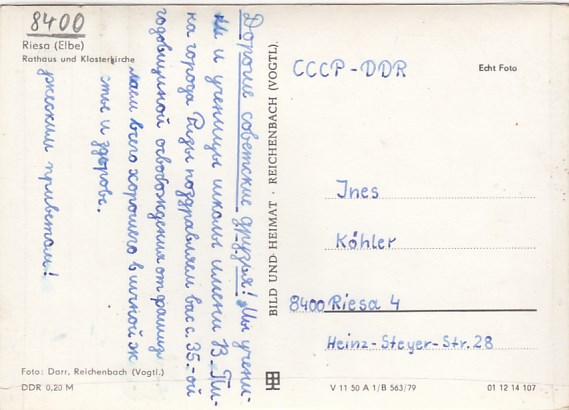 8400
Riesa (Elbe)
Rathaus und Klosterkirche
Дорогие советские друзья! Мы учени-
ки и ученицы школы имени В. Пи-
ка города Ризы поздравляем вас с 35.-ой
годовщиной освобождения от фашиз
лаем всего хорошего в ичной ж
стье и здоровье.
ржеским приветом!
BILD UND HEIMAT · REICHENBACH (VOGTL).
СССР - DDR
Echt Foto
Ines
Köhler
8400 Riesa 4
Heinz-Steyer-Str. 28
Foto: Darr, Reichenbach (Vogtl.)
DDR 0,20 M
V 11 50 A 1/B 563/79
01 12 14 107